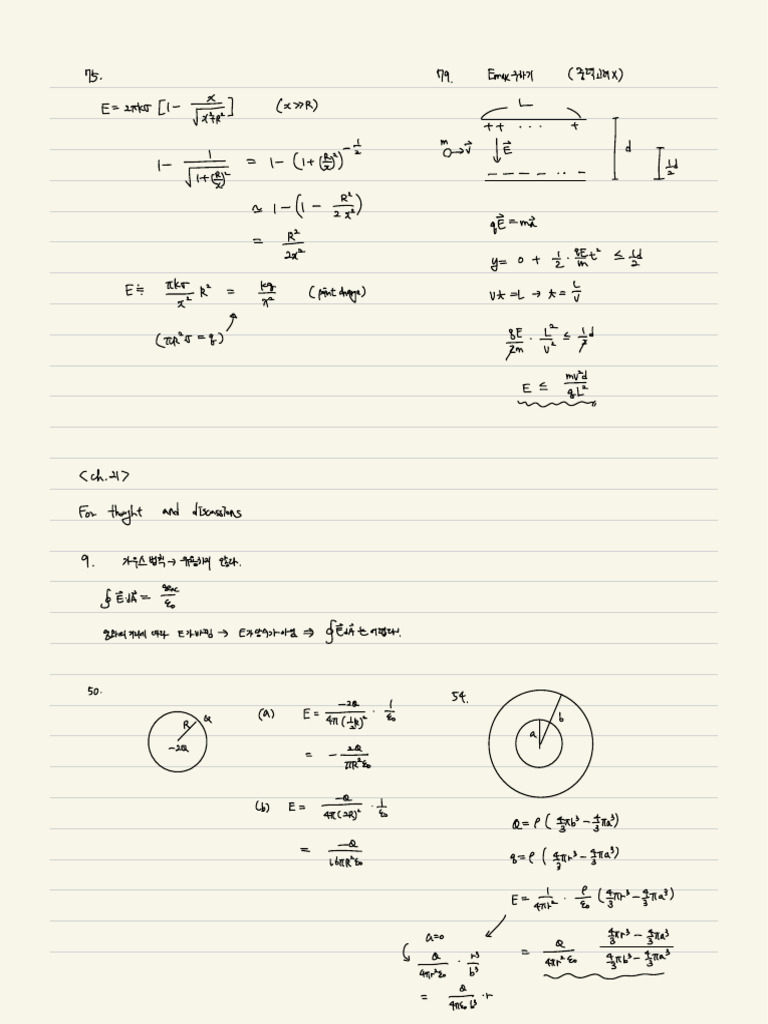 75.
E = 2πkσ [1 - x/√(x²+R²)] (x≫R)
1 - 1/√(1+(R/x)²) = 1 - (1+(R/x)²)^(-1/2)
≃ 1 - (1 - R²/2x²)
= R²/2x²
E ≒ πkσ/x² R² = kq/x² (point charge)
(πR²σ = q)
79. Emax 구하기 (중력고려X)
L
++ ... +
m v⃗ E⃗ d ½d
– – – – – ·· –
qE⃗ = ma⃗
y = 0 + ½ · qE/m t² ≤ ½d
vt = L → t = L/v
qE/2m · L²/v² ≤ ½d
E ≤ mv²d/qL²
<ch.21>
For thought and discussions
9. 가우스 법칙 → 유용하지 않다.
∮E⃗dA⃗ = qenc/ε₀
E가 바뀜 → E가 상수가 아님 ⇒ ∮E⃗dA⃗는 어렵다.
50.
R Q
-2Q
(a) E = -2Q/4π(½R)² · 1/ε₀
= - 2Q/πR²ε₀
(b) E = -Q/4π(2R)² · 1/ε₀
= -Q/16πR²ε₀
54.
a b
Q = ρ(4/3πb³ - 4/3πa³)
q = ρ(4/3πr³ - 4/3πa³)
E = 1/4πr² · ρ/ε₀ (4/3πr³ - 4/3πa³)
= Q/4πr²ε₀ (4/3πr³ - 4/3πa³)/(4/3πb³ - 4/3πa³)
a=0
Q/4πr²ε₀ · r³/b³
= Q/4πε₀b³ · r